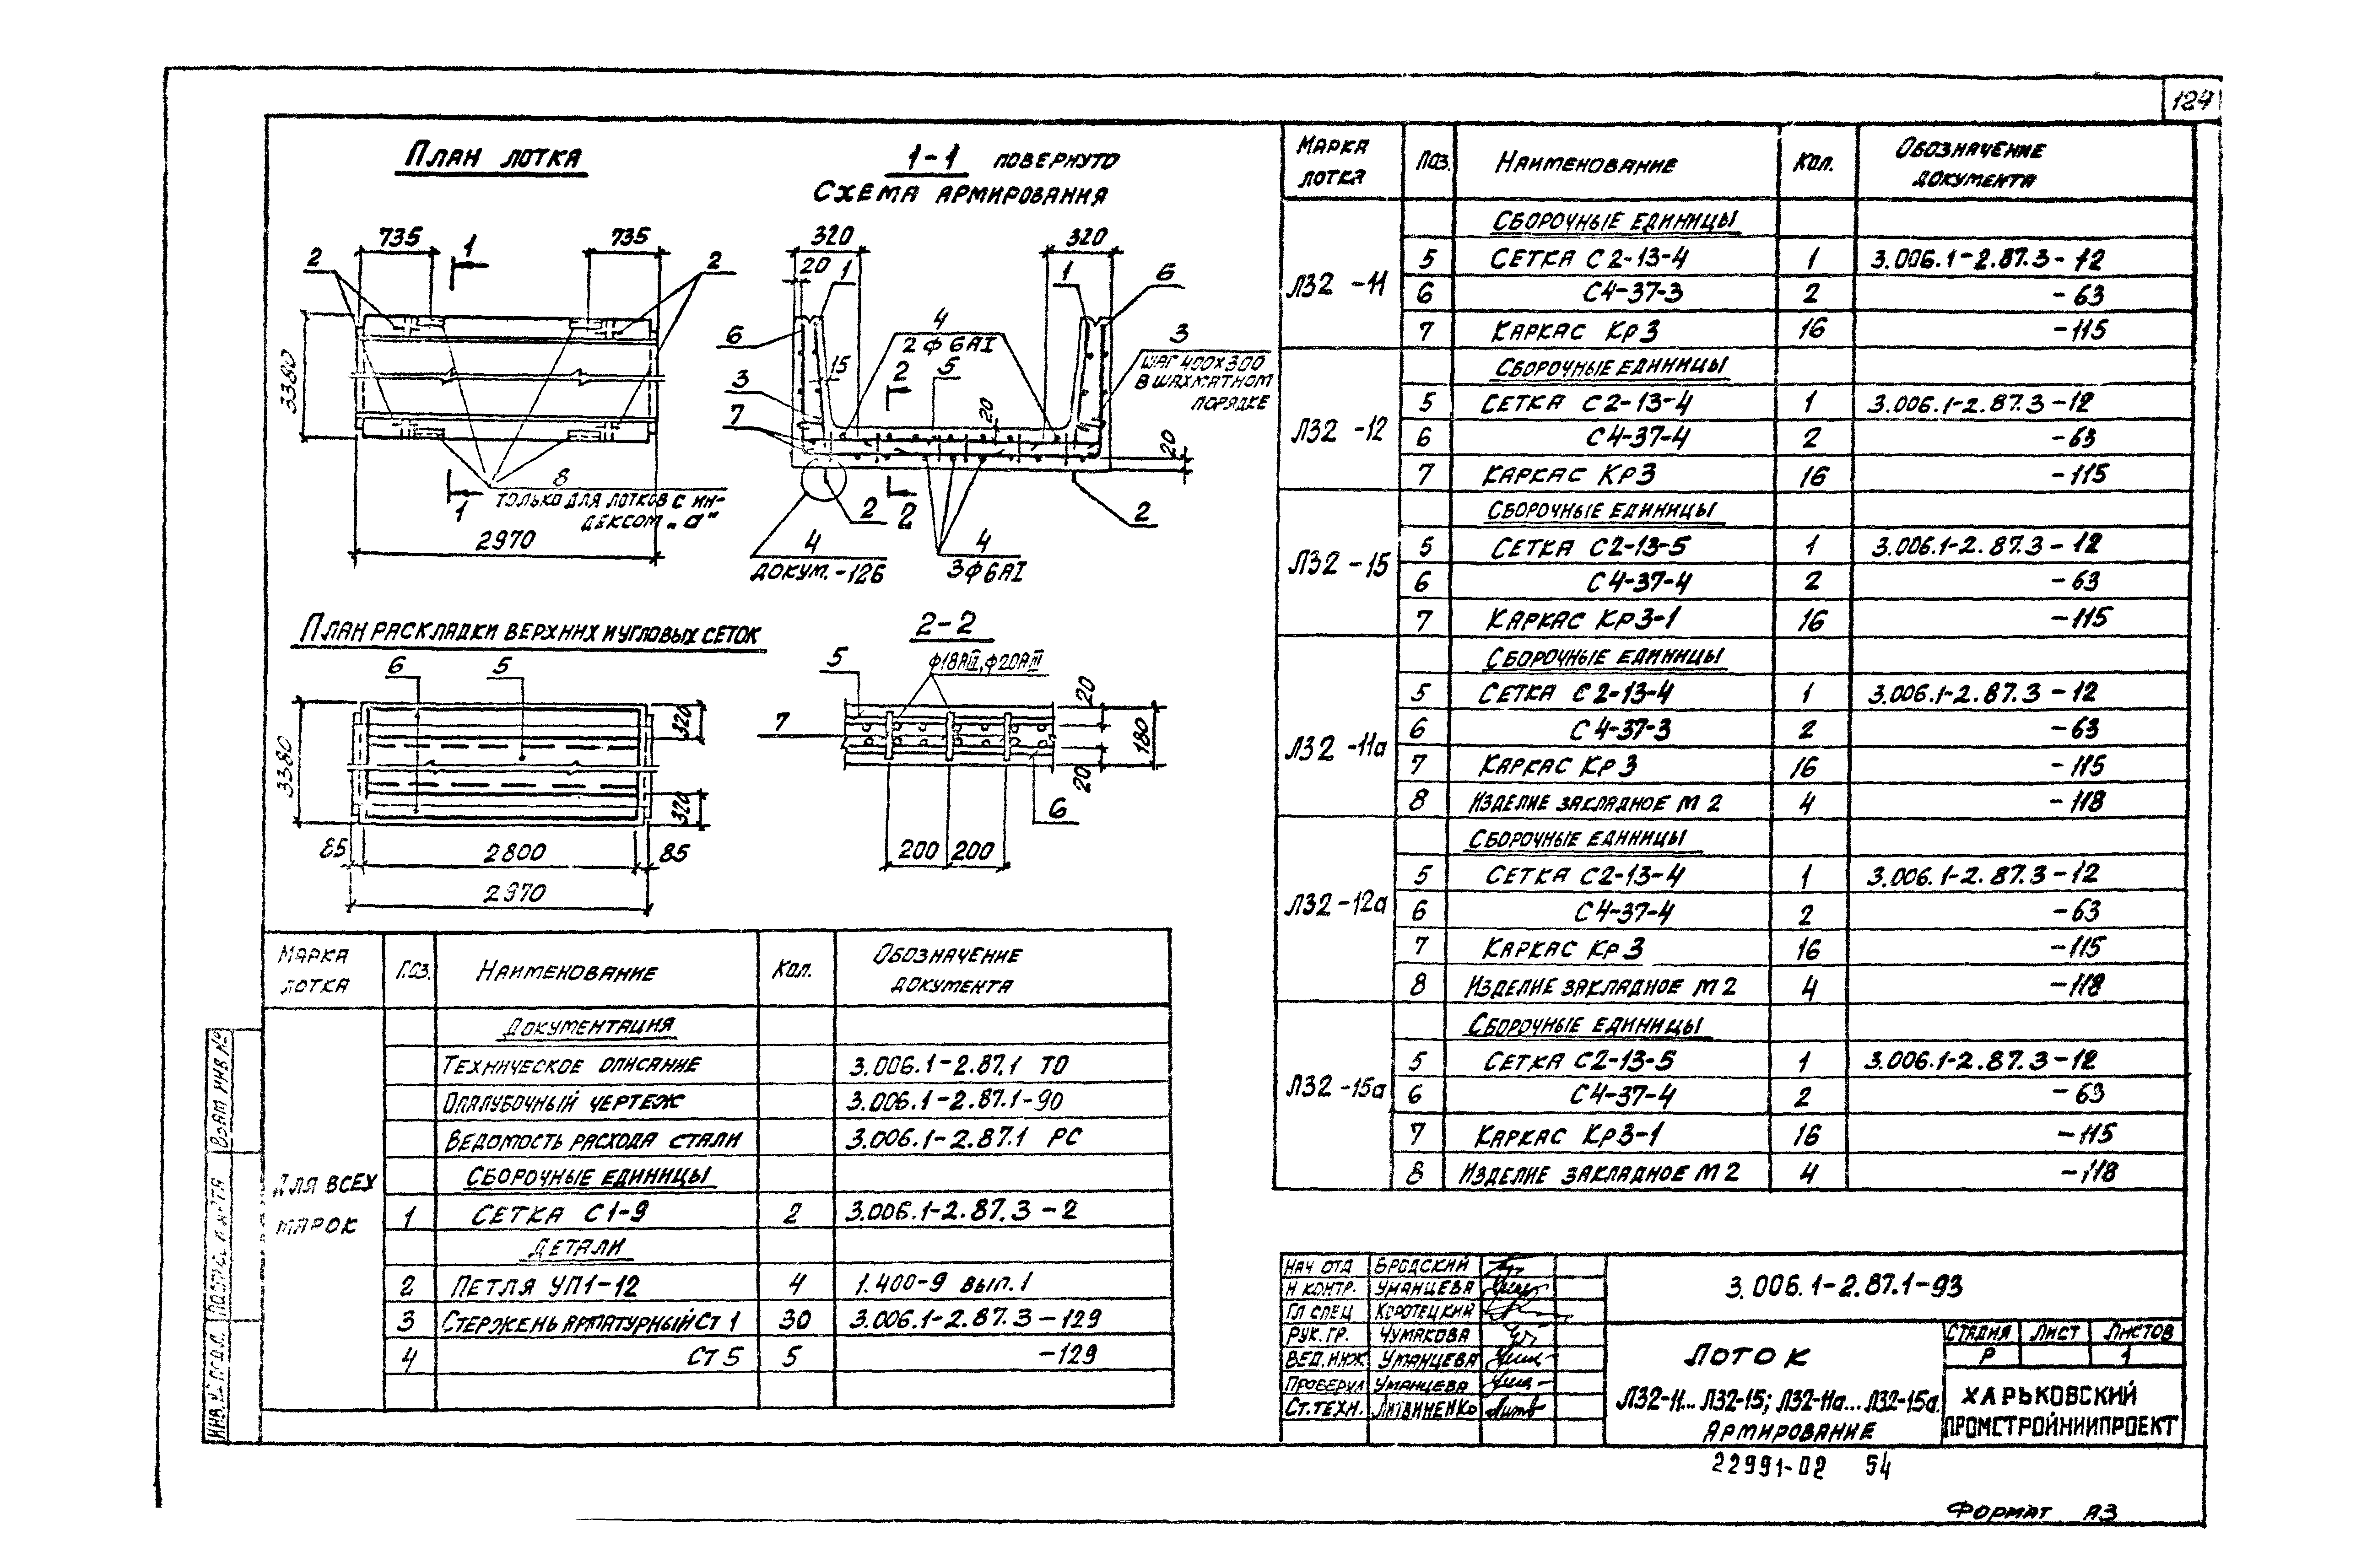 124
План лотка
1-1 повернуто
Схема армирования
735
735
1
2
2
3380
8
только для лотков с ин-
дексом „а"
1
2970
320
320
20
1
1
6
6
4
2ф6АI
3
шаг 400х300
в шахматном
порядке
15
2
5
3
7
20
20
2
2
2
4
докум. -126
4
3ф6АI
План раскладки верхних и угловых сеток
6
5
3380
320
320
85
2800
85
2970
2-2
5
ф18АIII, ф20АIII
7
20
180
20
6
200
200
Марка лотка
Поз.
Наименование
Кол.
Обозначение документа
Для всех марок
Документация
Техническое описание 3.006.1-2.87.1 ТО
Опалубочный чертеж 3.006.1-2.87.1-90
Ведомость расхода стали 3.006.1-2.87.1 РС
Сборочные единицы
1 Сетка С1-9 2 3.006.1-2.87.3-2
Детали
2 Петля УП1-12 4 1.400-9 вып.1
3 Стержень арматурный Ст 1 30 3.006.1-2.87.3-129
4 Ст 5 5 -129
Марка лотка
Поз.
Наименование
Кол.
Обозначение документа
Сборочные единицы
Л32-11
5 Сетка С2-13-4 1 3.006.1-2.87.3-12
6 С4-37-3 2 -63
7 Каркас Кр3 16 -115
Сборочные единицы
Л32-12
5 Сетка С2-13-4 1 3.006.1-2.87.3-12
6 С4-37-4 2 -63
7 Каркас Кр3 16 -115
Сборочные единицы
Л32-15
5 Сетка С2-13-5 1 3.006.1-2.87.3-12
6 С4-37-4 2 -63
7 Каркас Кр3-1 16 -115
Сборочные единицы
Л32-11а
5 Сетка С2-13-4 1 3.006.1-2.87.3-12
6 С4-37-3 2 -63
7 Каркас Кр3 16 -115
8 Изделие закладное М2 4 -118
Сборочные единицы
Л32-12а
5 Сетка С2-13-4 1 3.006.1-2.87.3-12
6 С4-37-4 2 -63
7 Каркас Кр3 16 -115
8 Изделие закладное М2 4 -118
Сборочные единицы
Л32-15а
5 Сетка С2-13-5 1 3.006.1-2.87.3-12
6 С4-37-4 2 -63
7 Каркас Кр3-1 16 -115
8 Изделие закладное М2 4 -118
Нач отд Бродский
Н контр. Уманцева
Гл спец Коротецкий
Рук. гр. Чумакова
Вед. инж Уманцева
Проверил Уманцева
Ст. техн. Литвиненко
3.006.1-2.87.1-93
Лоток
Л32-11... Л32-15; Л32-11а... Л32-15а.
Армирование
Стадия Лист Листов
Р 1
Харьковский
Промстройниипроект
22991-02 54
Формат А3
Взам инв №
Инв. № подл.